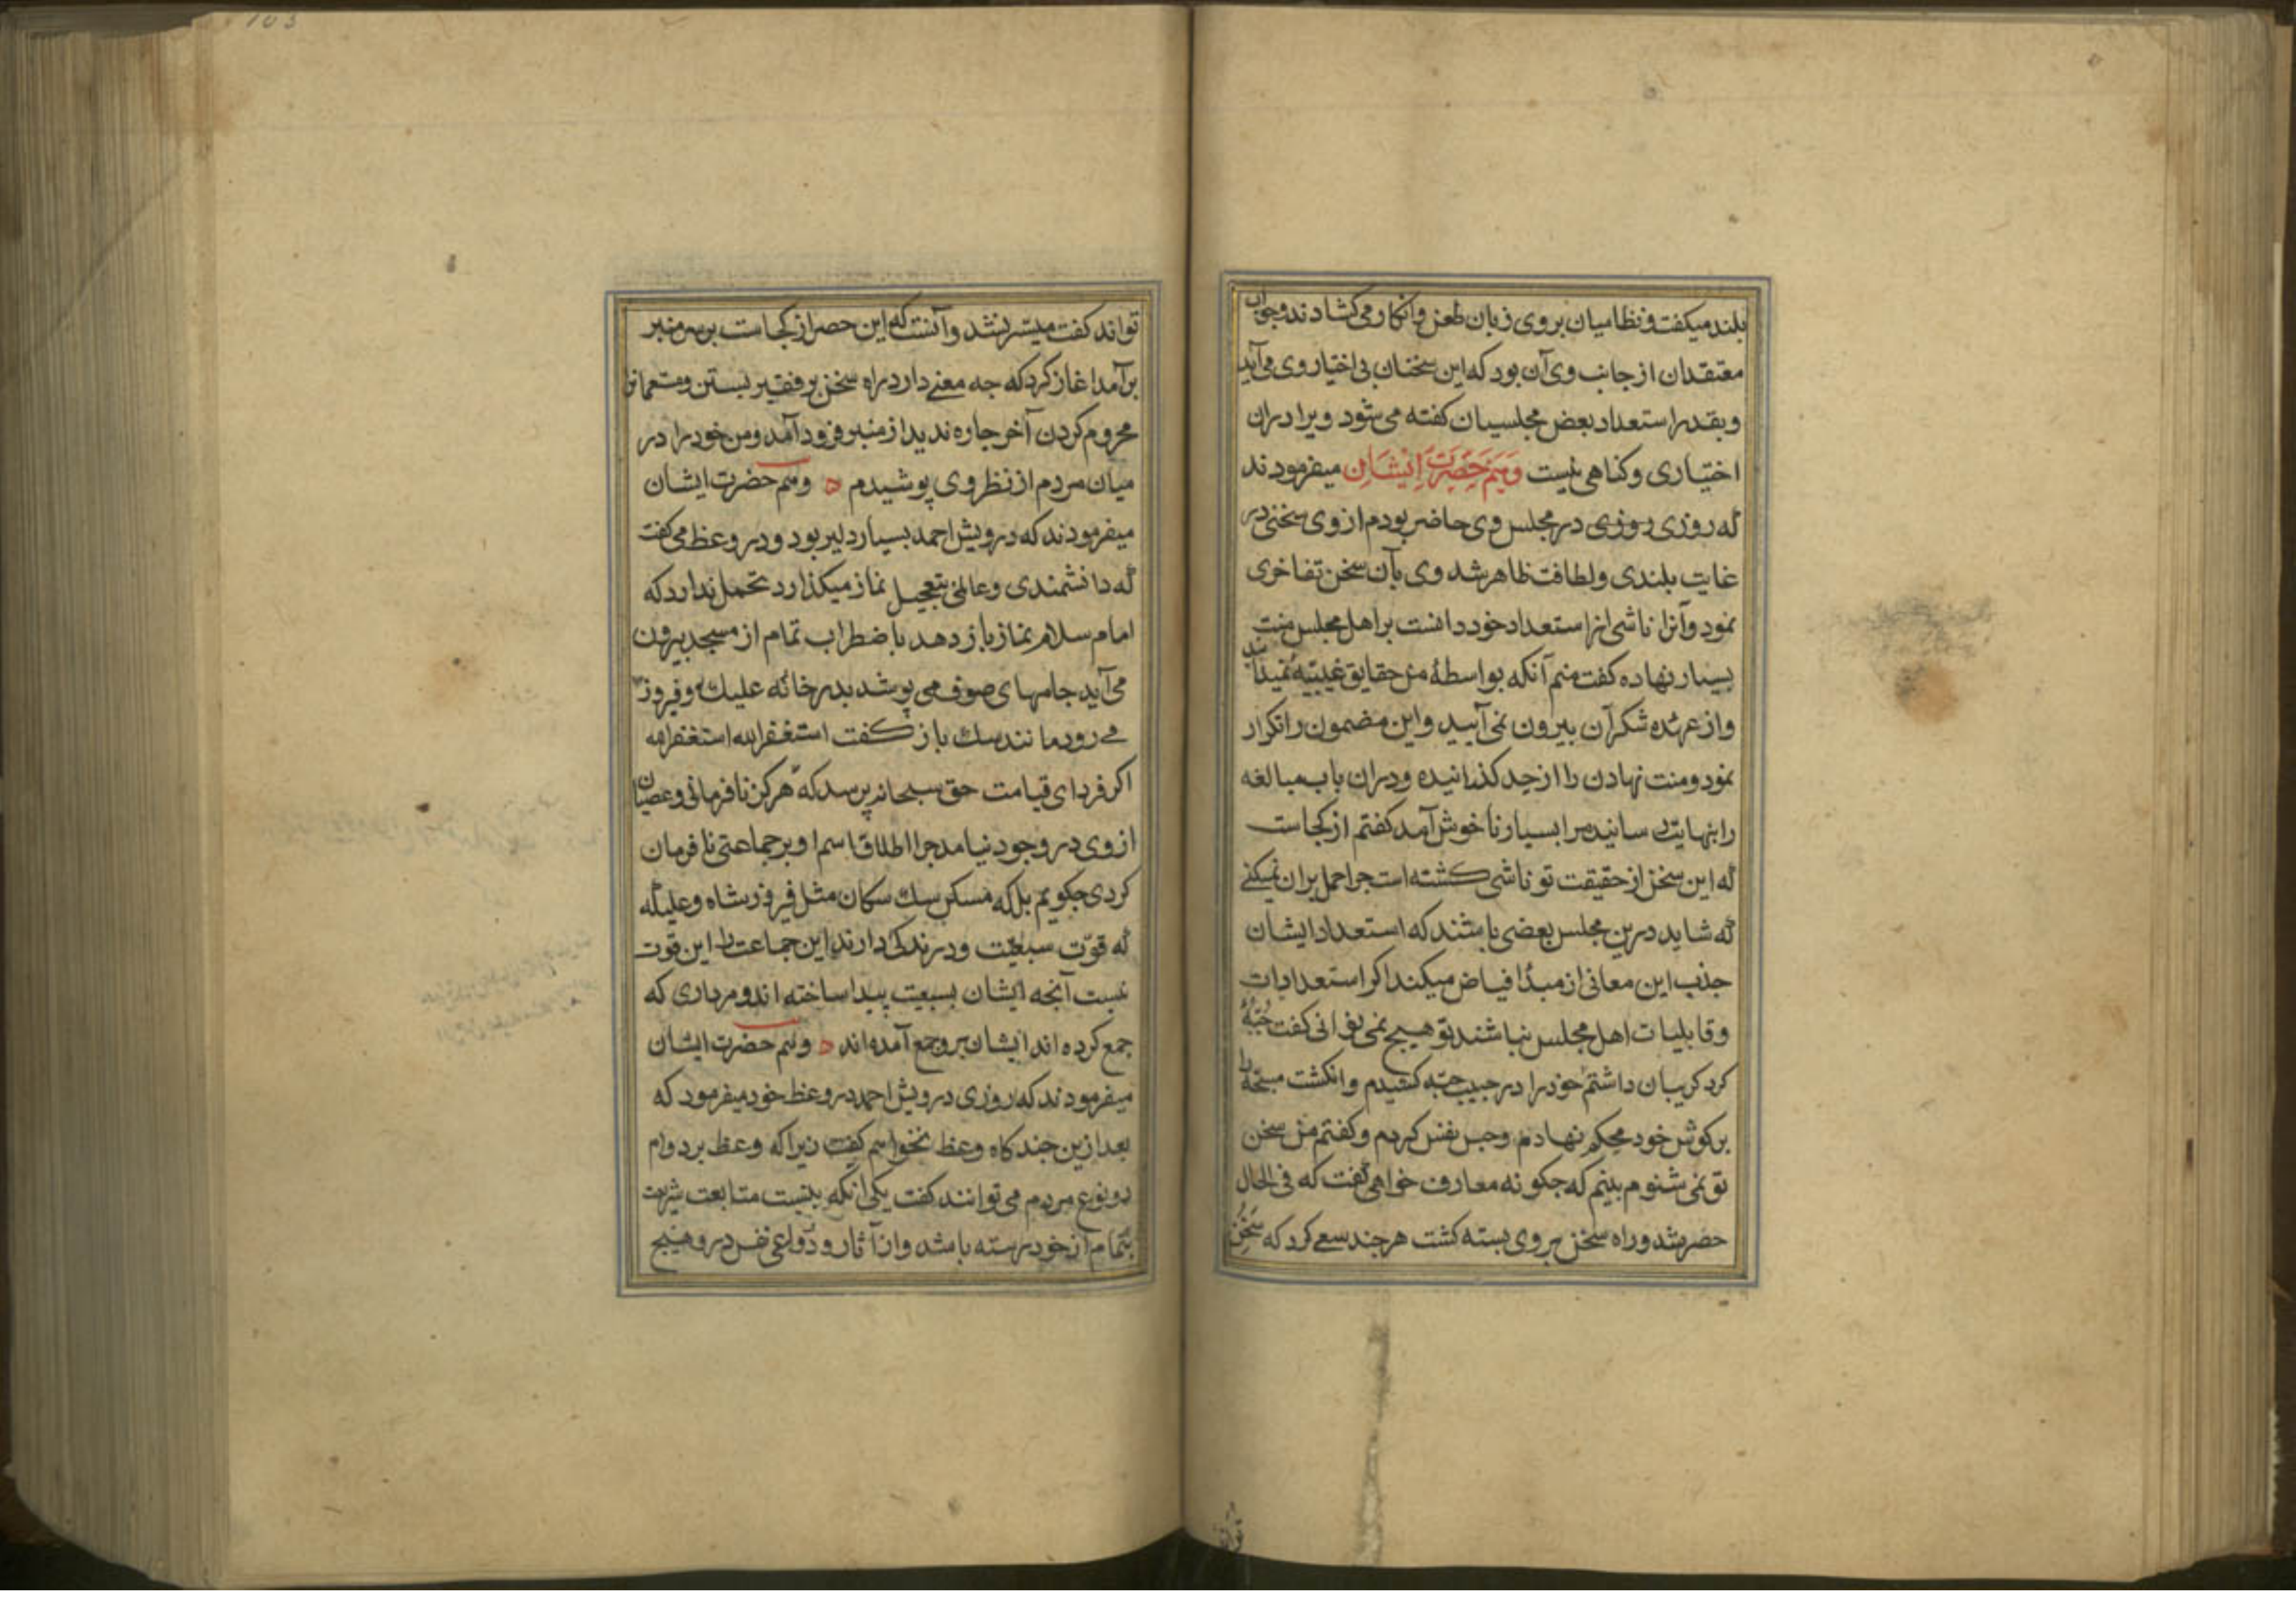 بلند میکفت و نظامیان بروی زبان طعن و انکار می کشادند و جواب
معتقدان از جانب وی آن بود که این سخنان بی اختیار وی می آید
و بقدر استعداد بعض مجلسیان کفته می شود ویرا دران
اختیاری و کناهی نیست وهم حضرت ایشان میفرمودند
که روزی روزی در مجلس وی حاضر بودم از وی سخنی در
غایت بلندی و لطافت ظاهر شد وی بآن سخن تفاخری
نمود و آنرا ناشی از استعداد خود دانست بر اهل مجلس منت
بسیار نهاده کفت منم آنکه بواسطهٔ من حقایق غیبیه
و از عهده شکر آن بیرون نمی آیید و این مضمون را تکرار
نمود و منت نهادن را از حد کذرانیده و دران باب مبالغه
را بنهایت رسانید مرا بسیار ناخوش آمد کفتم از کجاست
که این سخن از حقیقت تو ناشی کشته است جرا حمل بران نمیکنی
که شاید درین مجلس بعضی باشند که استعداد ایشان
جذب این معانی از مبدأ فیاض میکند اکر استعدادات
و قابلیات اهل مجلس نباشند تو هیچ نمی توانی کفت جبهٔ
کرد کریبان داشتم خود را در جیب جبه کشیدم و انکشت مسبحه را
بر کوش خود محکم نهادم و حبس نفس کردم و کفتم من سخن
تو نمی شنوم بینم که جکونه معارف خواهی کفت که فی الحال
حصر شد و راه سخن بر وی بسته کشت هرجند سعی کرد که سخن
تواند
تواند کفت میسر نشد و دانست که این حصر از کجاست بر سر منبر
بر آمد اغاز کرد که جه معنی دارد راه سخن بر فقیر بستن و مستمعانرا
محروم کردن آخر جاره ندید از منبر فرود آمد و من خود را در
میان مردم از نظر وی پوشیدم ه وهم حضرت ایشان
میفرمودند که درویش احمد بسیار دلیر بود و در وعظ می کفت
که دانشمندی و عالمی بتعجیل نماز میکذارد تحمل ندارد که
امام سلام نماز باز دهد باضطراب تمام از مسجد بیرون
می آید جامهای صوف می پوشد بدر خانه علیکه و فیروز
می رود مانند سک باز کفت استغفرالله استغفرالله
اکر فردای قیامت حق سبحانه پرسد که هرکز نافرمانی و عصیان
از وی در وجود نیامد جرا اطلاق اسم او بر جماعتی نافرمان
کردی جکویم بلکه مسکن سک سکان مثل فیروزشاه و علیکه
که قوّت سبعیّت و درندکی دارند این جماعت را این قوت
نیست آنجه ایشان بسبعیت پیدا ساخته اند و مرداری که
جمع کرده اند ایشان بر وجمع آمده اند ه وهم حضرت ایشان
میفرمودند که روزی درویش احمد در وعظ خود میفرمود که
بعد ازین جند کاه وعظ نخواهم کفت زیرا که وعظ بر دوام
دو نوع مردم می توانند کفت یکی آنکه بنسبت متابعت شریعت
بتمام از خود رسته باشد و از آثار و دواعی نفس در وهیج